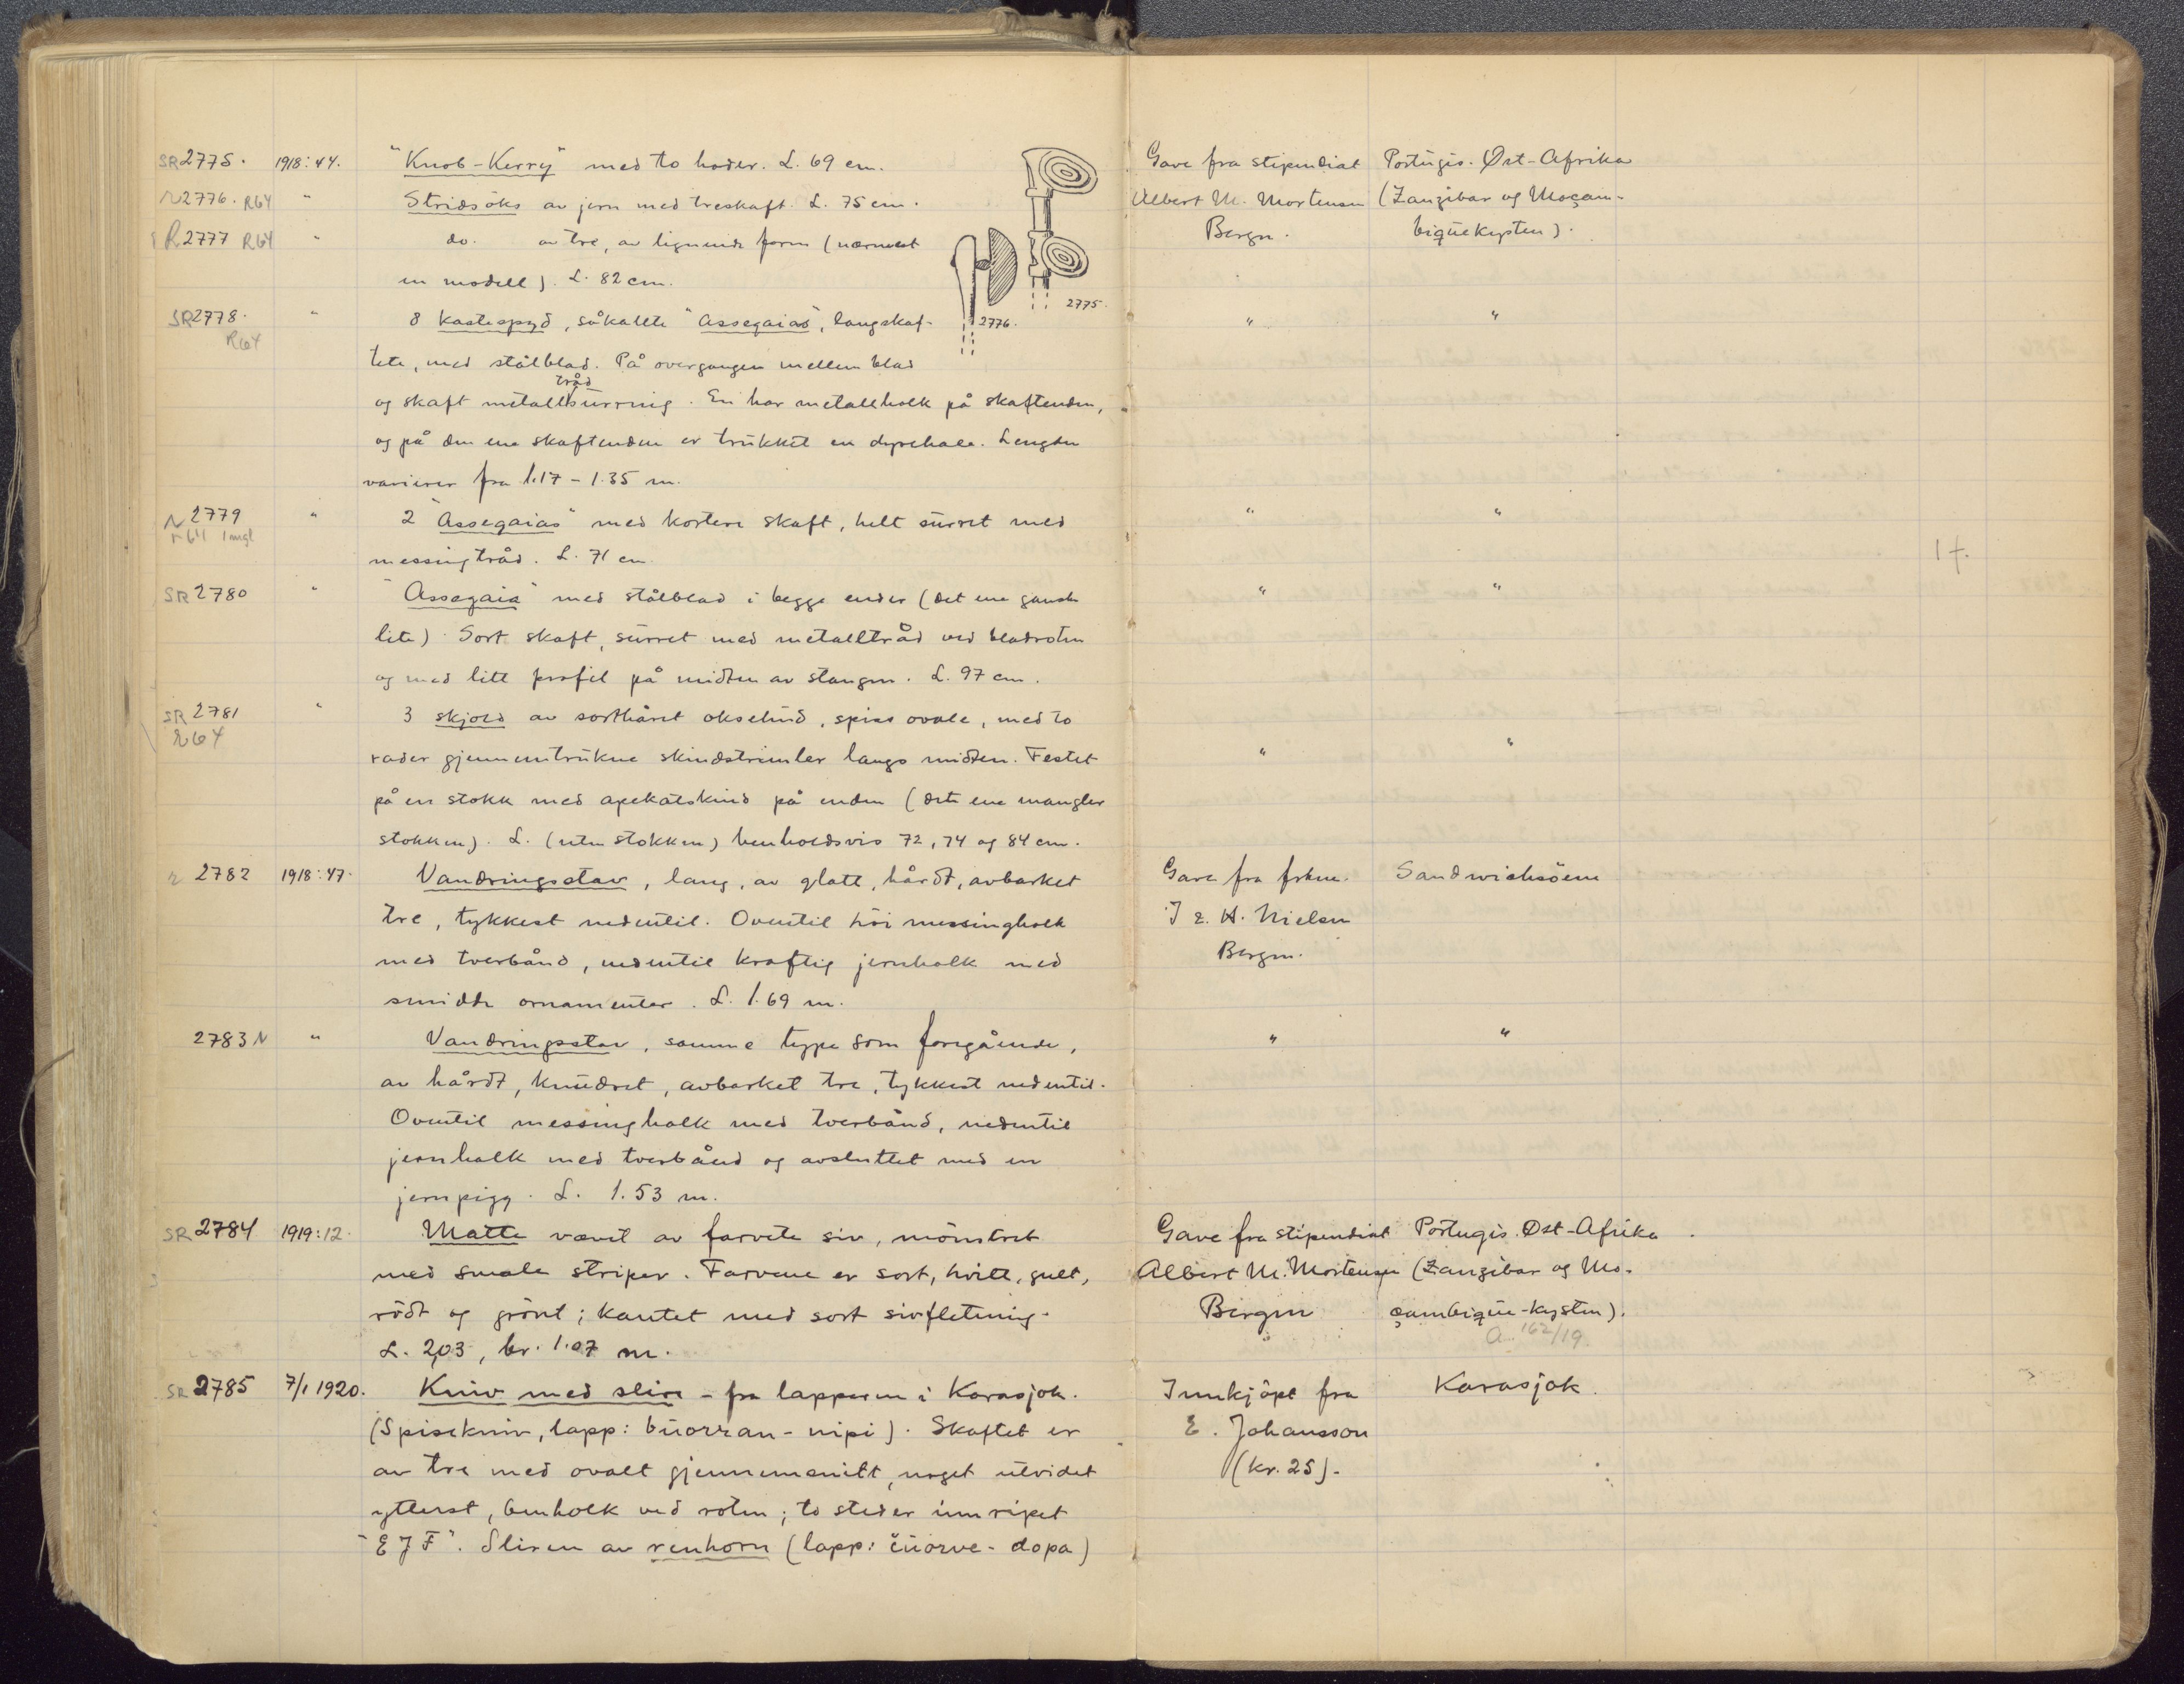 SR 2775. 1918:44. "Knob-Kerry" med to hoder. L. 69 cm. Gave fra stipendiat Portugis. Øst-Afrika
2776. R64 " Stridsöks av jern med treskaft. L. 75 cm. Albert M. Mortensen (Zanzibar og Moçam-
R 2777 R64 " do. av tre, av lignende form (nærmest Bergen. biquekysten).
en modell). L. 82 cm.
2775.
2776.
SR 2778. " 8 kastespyd, såkalte "assegaias", langskaf- " "
R64
tete, med stålblad. På overgangen mellem blad
tråd
og skaft metallsurring. En har metallholk på skaftenden,
og på den ene skaftenden er trukket en dyrehale. Lengden
varierer fra 1.17 - 1.35 m.
N 2779 " 2 "Assegaias" med kortere skaft, helt surret med " "
r64 1 mgl
messingtråd. L. 71 cm. 1 f.
SR 2780 " "Assegaia" med stålblad i begge ender (det ene ganske " "
lite). Sort skaft, surret med metalltråd ved bladroten
og med litt profil på midten av stangen. L. 97 cm.
SR 2781 " 3 skjold av sorthåret oksehud, spiss ovale, med to
R64
rader gjennemtrukne skindstrimler langs midten. Festet " "
på en stokk med apekatskind på enden (det ene mangler
stokken). L. (uten stokken) henholdsvis 72, 74 og 84 cm.
r 2782 1918:47. Vandringsstav, lang, av glatt, hårdt, avbarket Gave fra frkne. Sandwichsöene
tre, tykkest nedentil. Oventil höi messingholk J E. H. Nielsen
med tverbånd, nedentil kraftig jernholk med Bergen.
smidde ornamenter. L. 1.69 m.
2783 N " Vandringsstav, samme type som foregående, " "
av hårdt, knudret, avbarket tre, tykkest nedentil.
Oventil messingholk med tverbånd, nedentil
jernholk med tverbånd og avsluttet med en
jernpigg. L. 1.53 m.
SR 2784 1919:12. Matte vævet av farvete siv, mönstret Gave fra stipendiat Portugis. Øst-Afrika
med smale striper. Farvene er sort, hvitt, gult, Albert M. Mortensen (Zanzibar og Mo-
rödt og grönt; kantet med sort sivfletning. Bergen çambique-kysten).
L. 2,03, br. 1.07 m. A. 162/19
SR 2785 7/1 1920. Kniv med slire - fra lapperne i Karasjok. Innkjöpt fra Karasjok.
(Spisekniv, lapp: buorran-nipi). Skaftet er E. Johansson
av tre med ovalt gjennemsnitt, noget utvidet (kr. 25).
ytterst, benholk ved roten; to steder innripet
"E J F". Sliren av renhorn (lapp: čuorve-dopa)